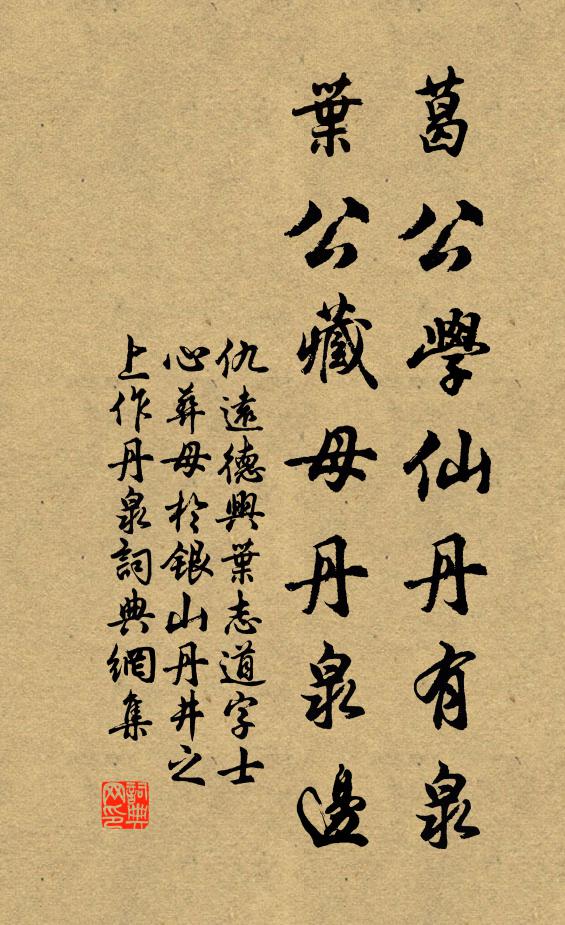 葛公學仙丹有泉
葉公藏母丹泉邊
仇遠德興葉志道字士
心葬母於銀山丹井之
上作丹泉詞典網集
詞典
网印